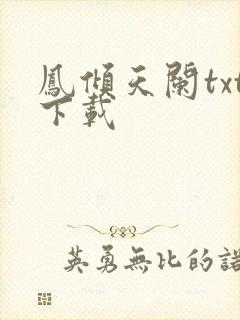 鳳傾天闌txt
下載
英勇無比的諾